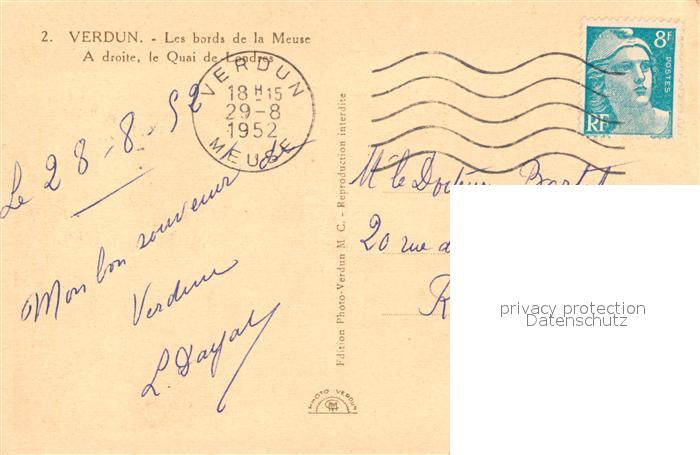 2. VERDUN. - Les bords de la Meuse
A droite, le Quai de Londres
VERDUN
18 H 15
29-8
1952
MEUSE
8F
POSTES
RF
Le 28-8-52
Mon bon souvenir de
Verdun
L.
Edition Photo-Verdun M C. - Reproduction interdite
PHOTO VERDUN
Mr le Docteur
20 rue d
R
privacy protection
Datenschutz